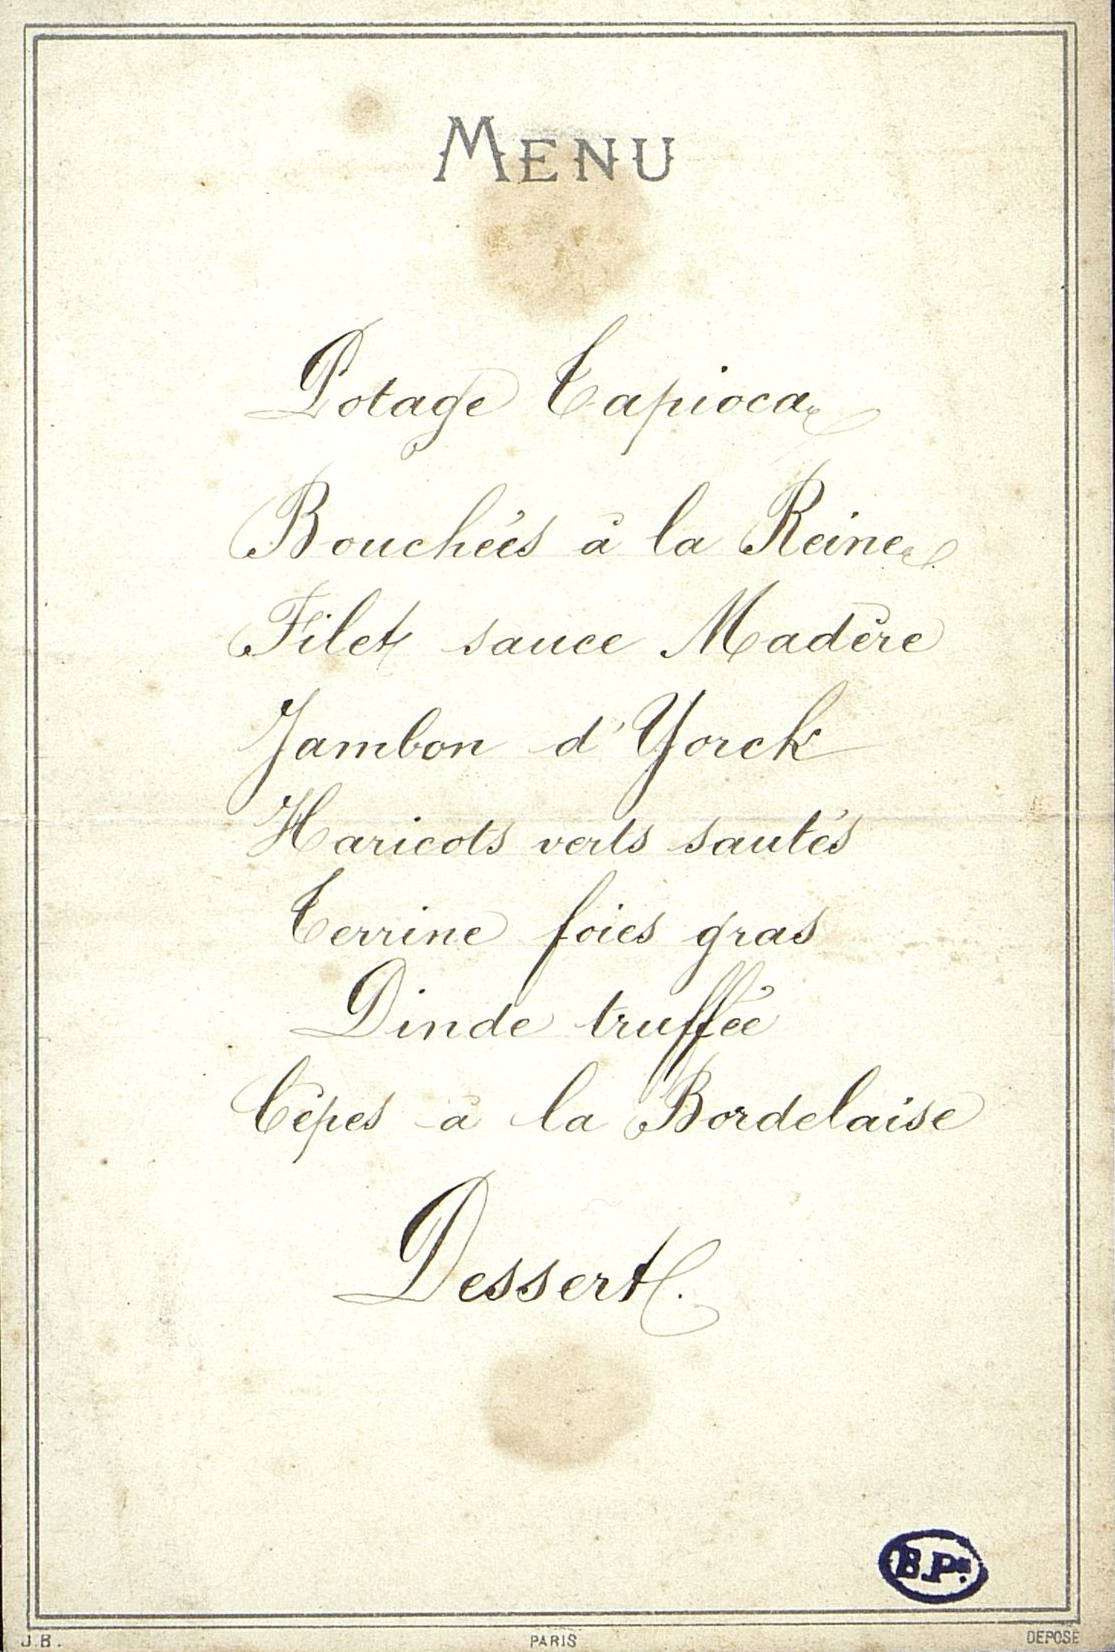 MENU
Potage Tapioca
Bouchées à la Reine
Filet sauce Madère
Jambon d'Yorck
Haricots verts sautés
Terrine foies gras
Dinde truffée
Cèpes à la Bordelaise
Dessert.
B.Ps.
J.B. PARIS DEPOSE